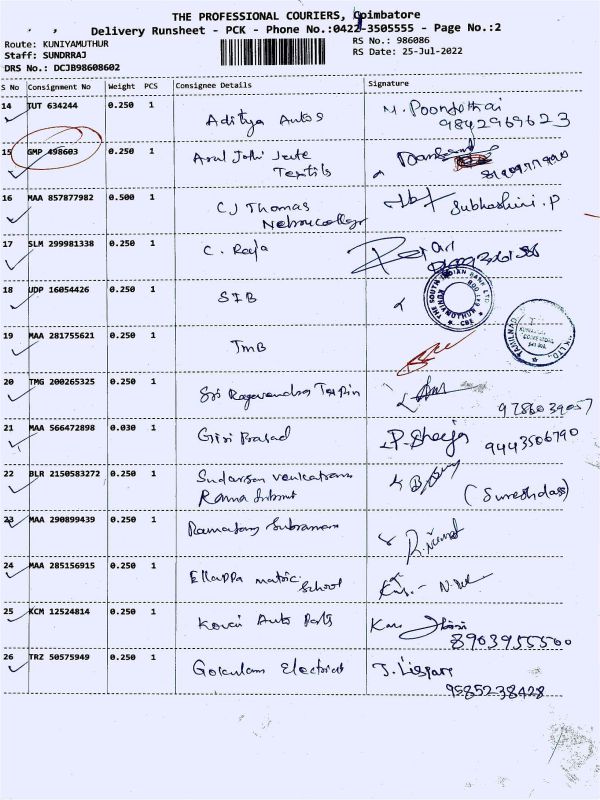 THE PROFESSIONAL COURIERS, Coimbatore
Delivery Runsheet - PCK - Phone No.:0422-3505555 - Page No.:2
Route: KUNIYAMUTHUR
Staff: SUNDRRAJ
DRS No.: DCJB98608602
RS No.: 986086
RS Date: 25-Jul-2022
S No Consignment No Weight PCS Consignee Details Signature
14 TUT 634244 0.250 1 Aditya Autos M. Poongothai
9842969623
15 GMP 498603 0.250 1 Arul Jothi Jeute
Textils
16 MAA 857877982 0.500 1 CJ Thomas Subhashini. P
Nehru college
17 SLM 299981338 0.250 1 C. Raja
18 UDP 16054426 0.250 1 SIB
THE SOUTH INDIAN BANK LTD.
KUNIAMUTHUR
CBE
19 MAA 281755621 0.250 1 TMB
TAMILNAD
20 TMG 200265325 0.250 1 Sri Ragavendra
9786039057
21 MAA 566472898 0.030 1 Giri Prasad P. Sheeja 9443506790
22 BLR 2150583272 0.250 1 Sudarson Venkatrama
Ranna (Sureshdass)
23 MAA 290899439 0.250 1 Ramasamy Subramani
24 MAA 285156915 0.250 1 Ellappa matric
School
25 KCM 12524814 0.250 1 Kovai Auto Parts
8903955500
26 TRZ 50575949 0.250 1 Gokulam Electrical
9585238428